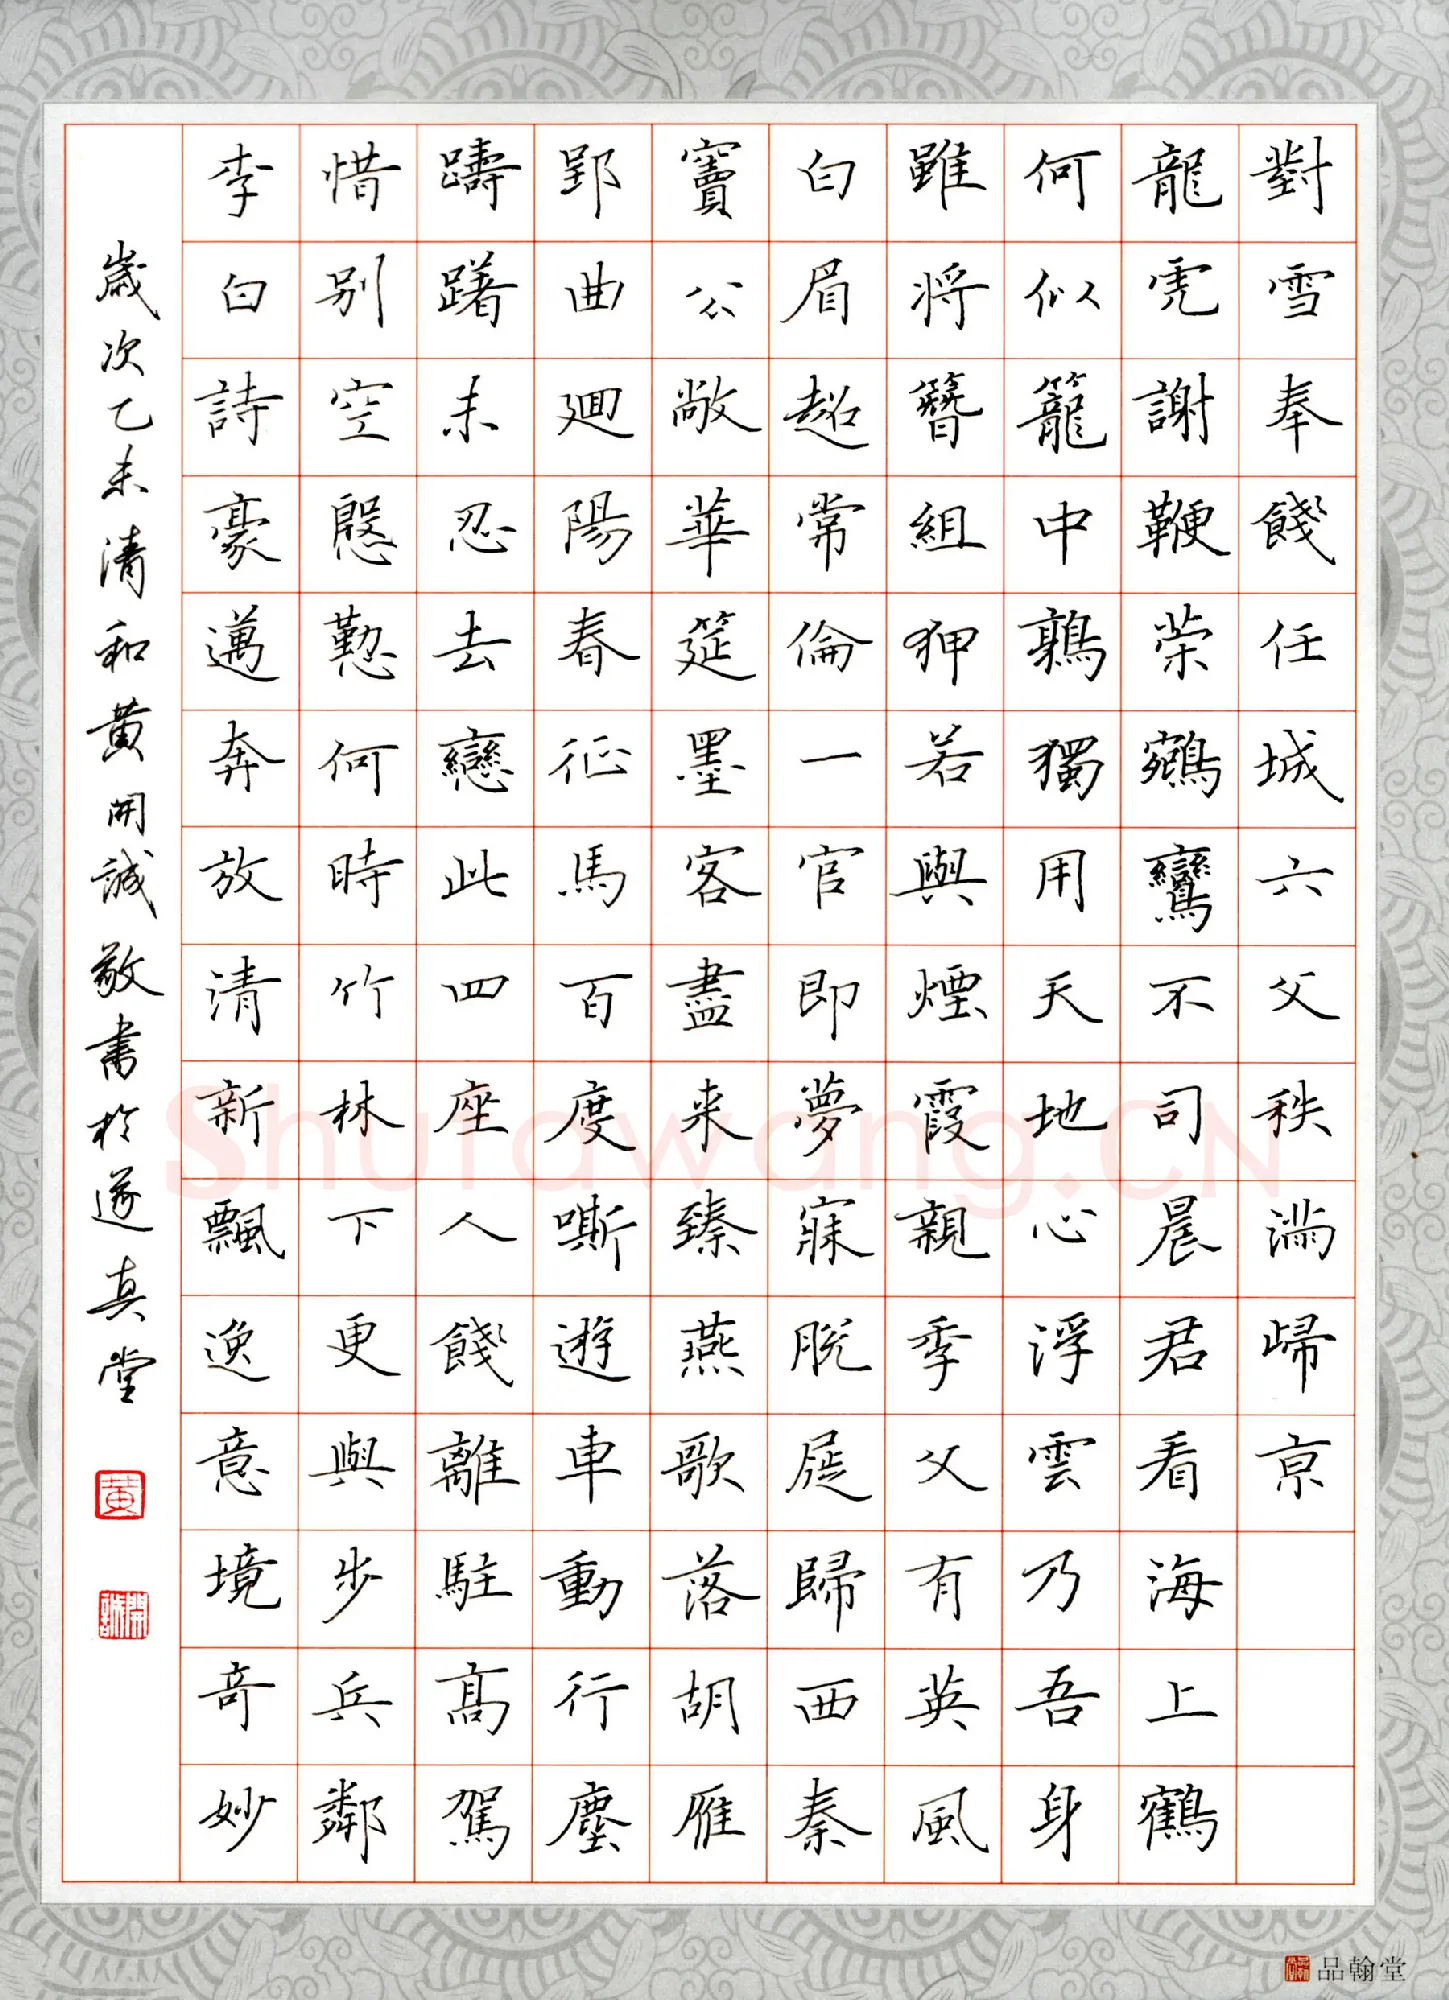 對雪奉餞任城六父秩滿歸京
龍虎謝鞭策鵷鸞不司晨君看海上鶴
何似籠中鶉獨用天地心浮雲乃吾身
雖將簪組狎若與煙霞親季父有英風
白眉超常倫一官即夢寐脫屣歸西秦
竇公敞華筵墨客盡来臻燕歌落胡雁
郢曲廻陽春征馬百度嘶遊車動行塵
躊躇未忍去戀此四座人餞離駐髙駕
惜別空慇懃何時竹林下更與步兵鄰
李白詩豪邁奔放清新飄逸意境奇妙
歲次乙未清和黃開誠敬書於遂真堂
黃
開誠
Shufawang.CN
品翰堂